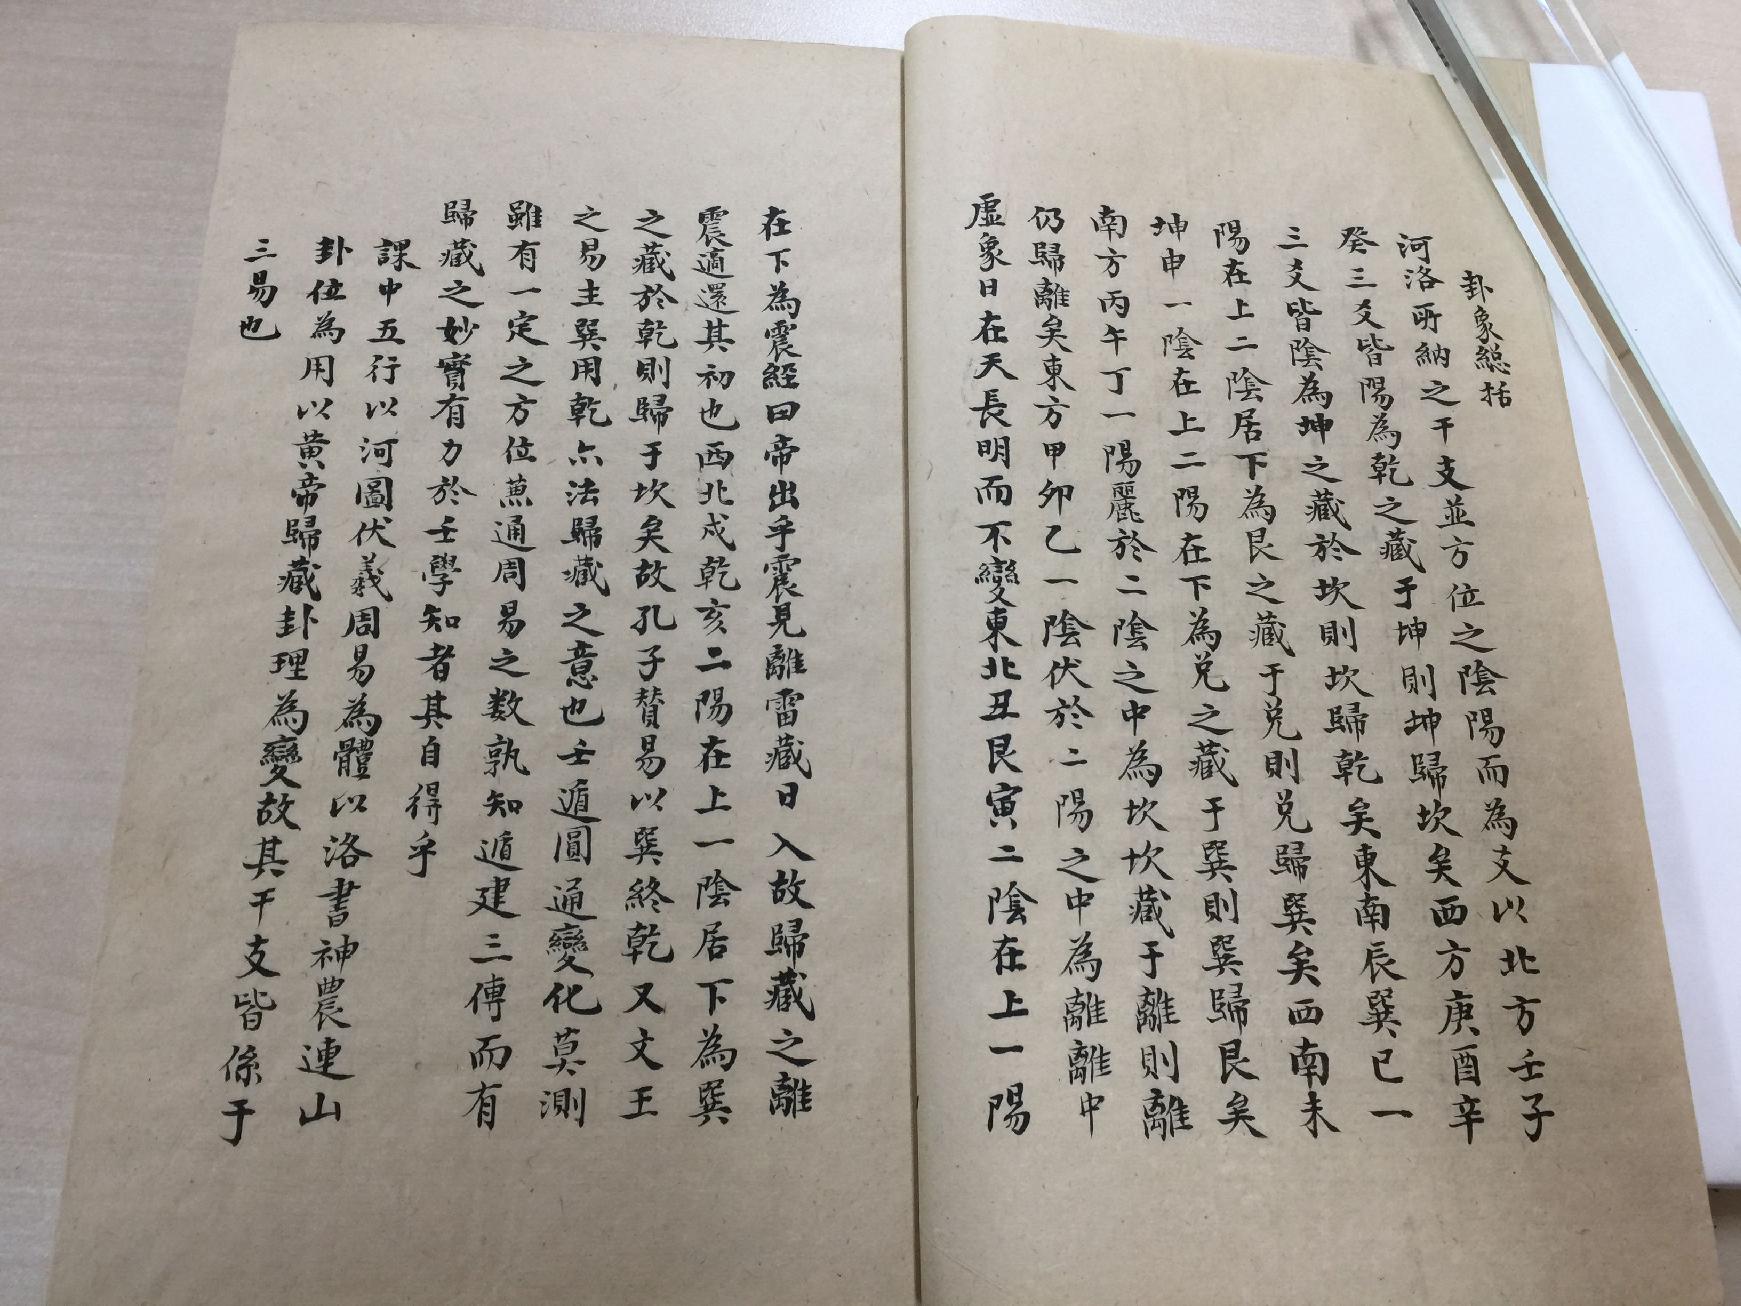 卦象総括
河洛所納之干支並方位之陰陽而為支以北方壬子
癸三爻皆陽為乾之藏于坤則坤歸坎矣西方庚酉辛
三爻皆陰為坤之藏於坎則坎歸乾矣東南辰巽巳一
陽在上二陰居下為艮之藏于兑則兑歸巽矣西南未
坤申一陰在上二陽在下為兑之藏于巽則巽歸艮矣
南方丙午丁一陽麗於二陰之中為坎坎藏于離則離
仍歸離矣東方甲卯乙一陰伏於二陽之中為離離中
虛象日在天長明而不變東北丑艮寅二陰在上一陽
在下為震經曰帝出乎震見離雷藏日入故歸藏之離
震適還其初也西北戌乾亥二陽在上一陰居下為巽
之藏於乾則歸于坎矣故孔子賛易以巽終乾又文王
之易主巽用乾六法歸藏之意也壬遁圓通變化莫測
雖有一定之方位蕉通周易之数孰知遁建三傳而有
歸藏之妙實有力於壬學知者其自得乎
課中五行以河圖伏羲周易為體以洛書神農連山
卦位為用以黄帝歸藏卦理為變故其干支皆係于
三易也